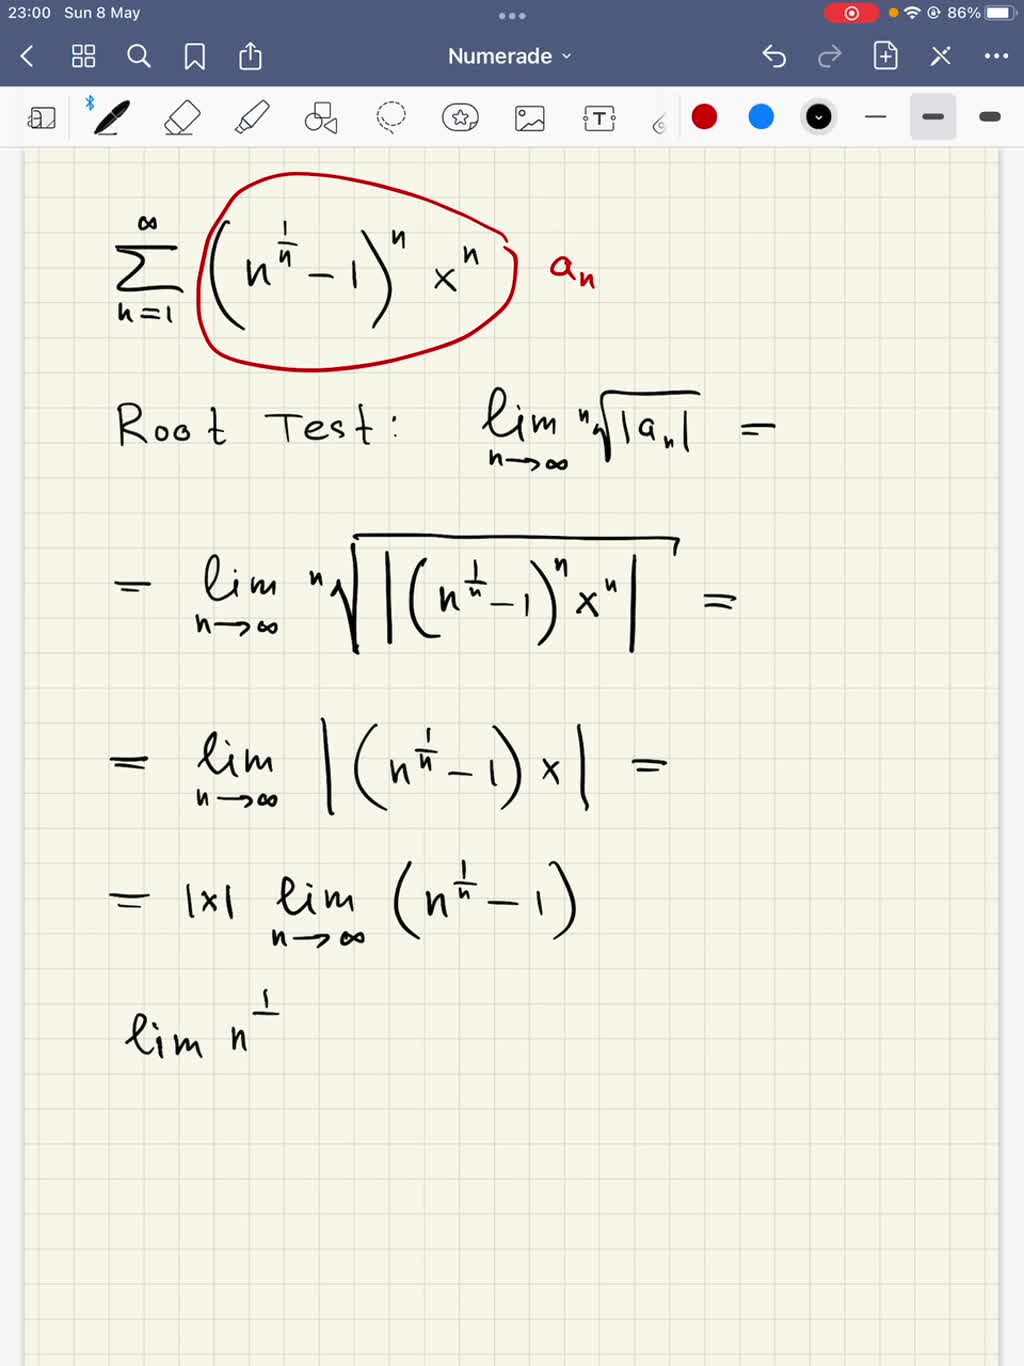 23:00 Sun 8 May 86%
Numerade
T
∞
∑ (n^{1/n} - 1)^n x^n a_n
n=1
Root Test: lim ⁿ√|a_n| =
n→∞
= lim ⁿ√|(n^{1/n} - 1)^n x^n| =
n→∞
= lim |(n^{1/n} - 1) x| =
n→∞
= |x| lim (n^{1/n} - 1)
n→∞
lim n^{1/}